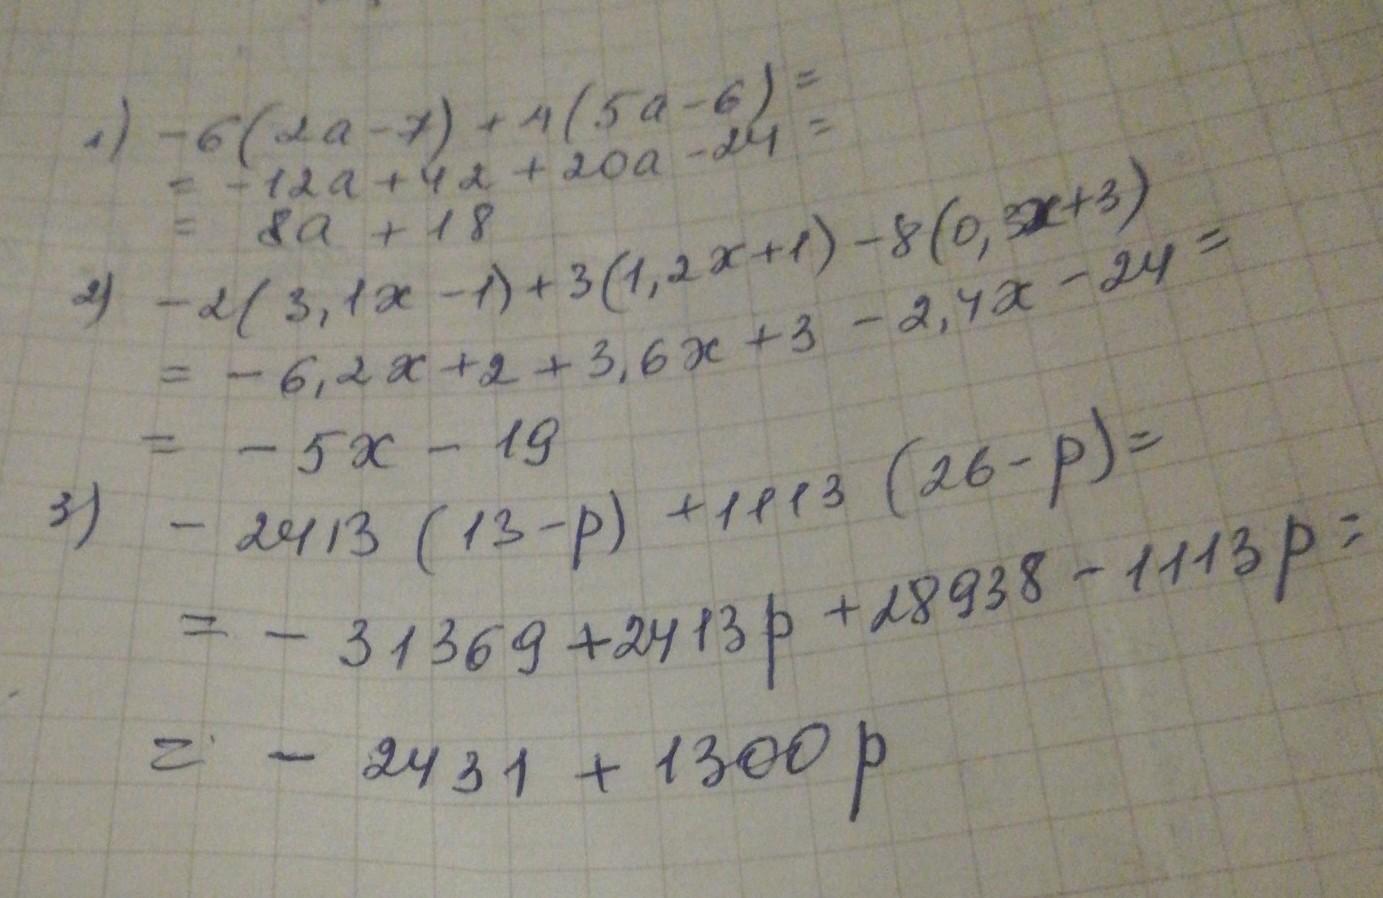 1) -6(2a-7)+4(5a-6)=
= -12a+42+20a-24=
= 8a+18
2) -2(3,1x-1)+3(1,2x+1)-8(0,3x+3)
= -6,2x+2+3,6x+3-2,4x-24=
= -5x-19
3) -2413(13-p)+1113(26-p)=
= -31369+2413p+28938-1113p=
= -2431+1300p